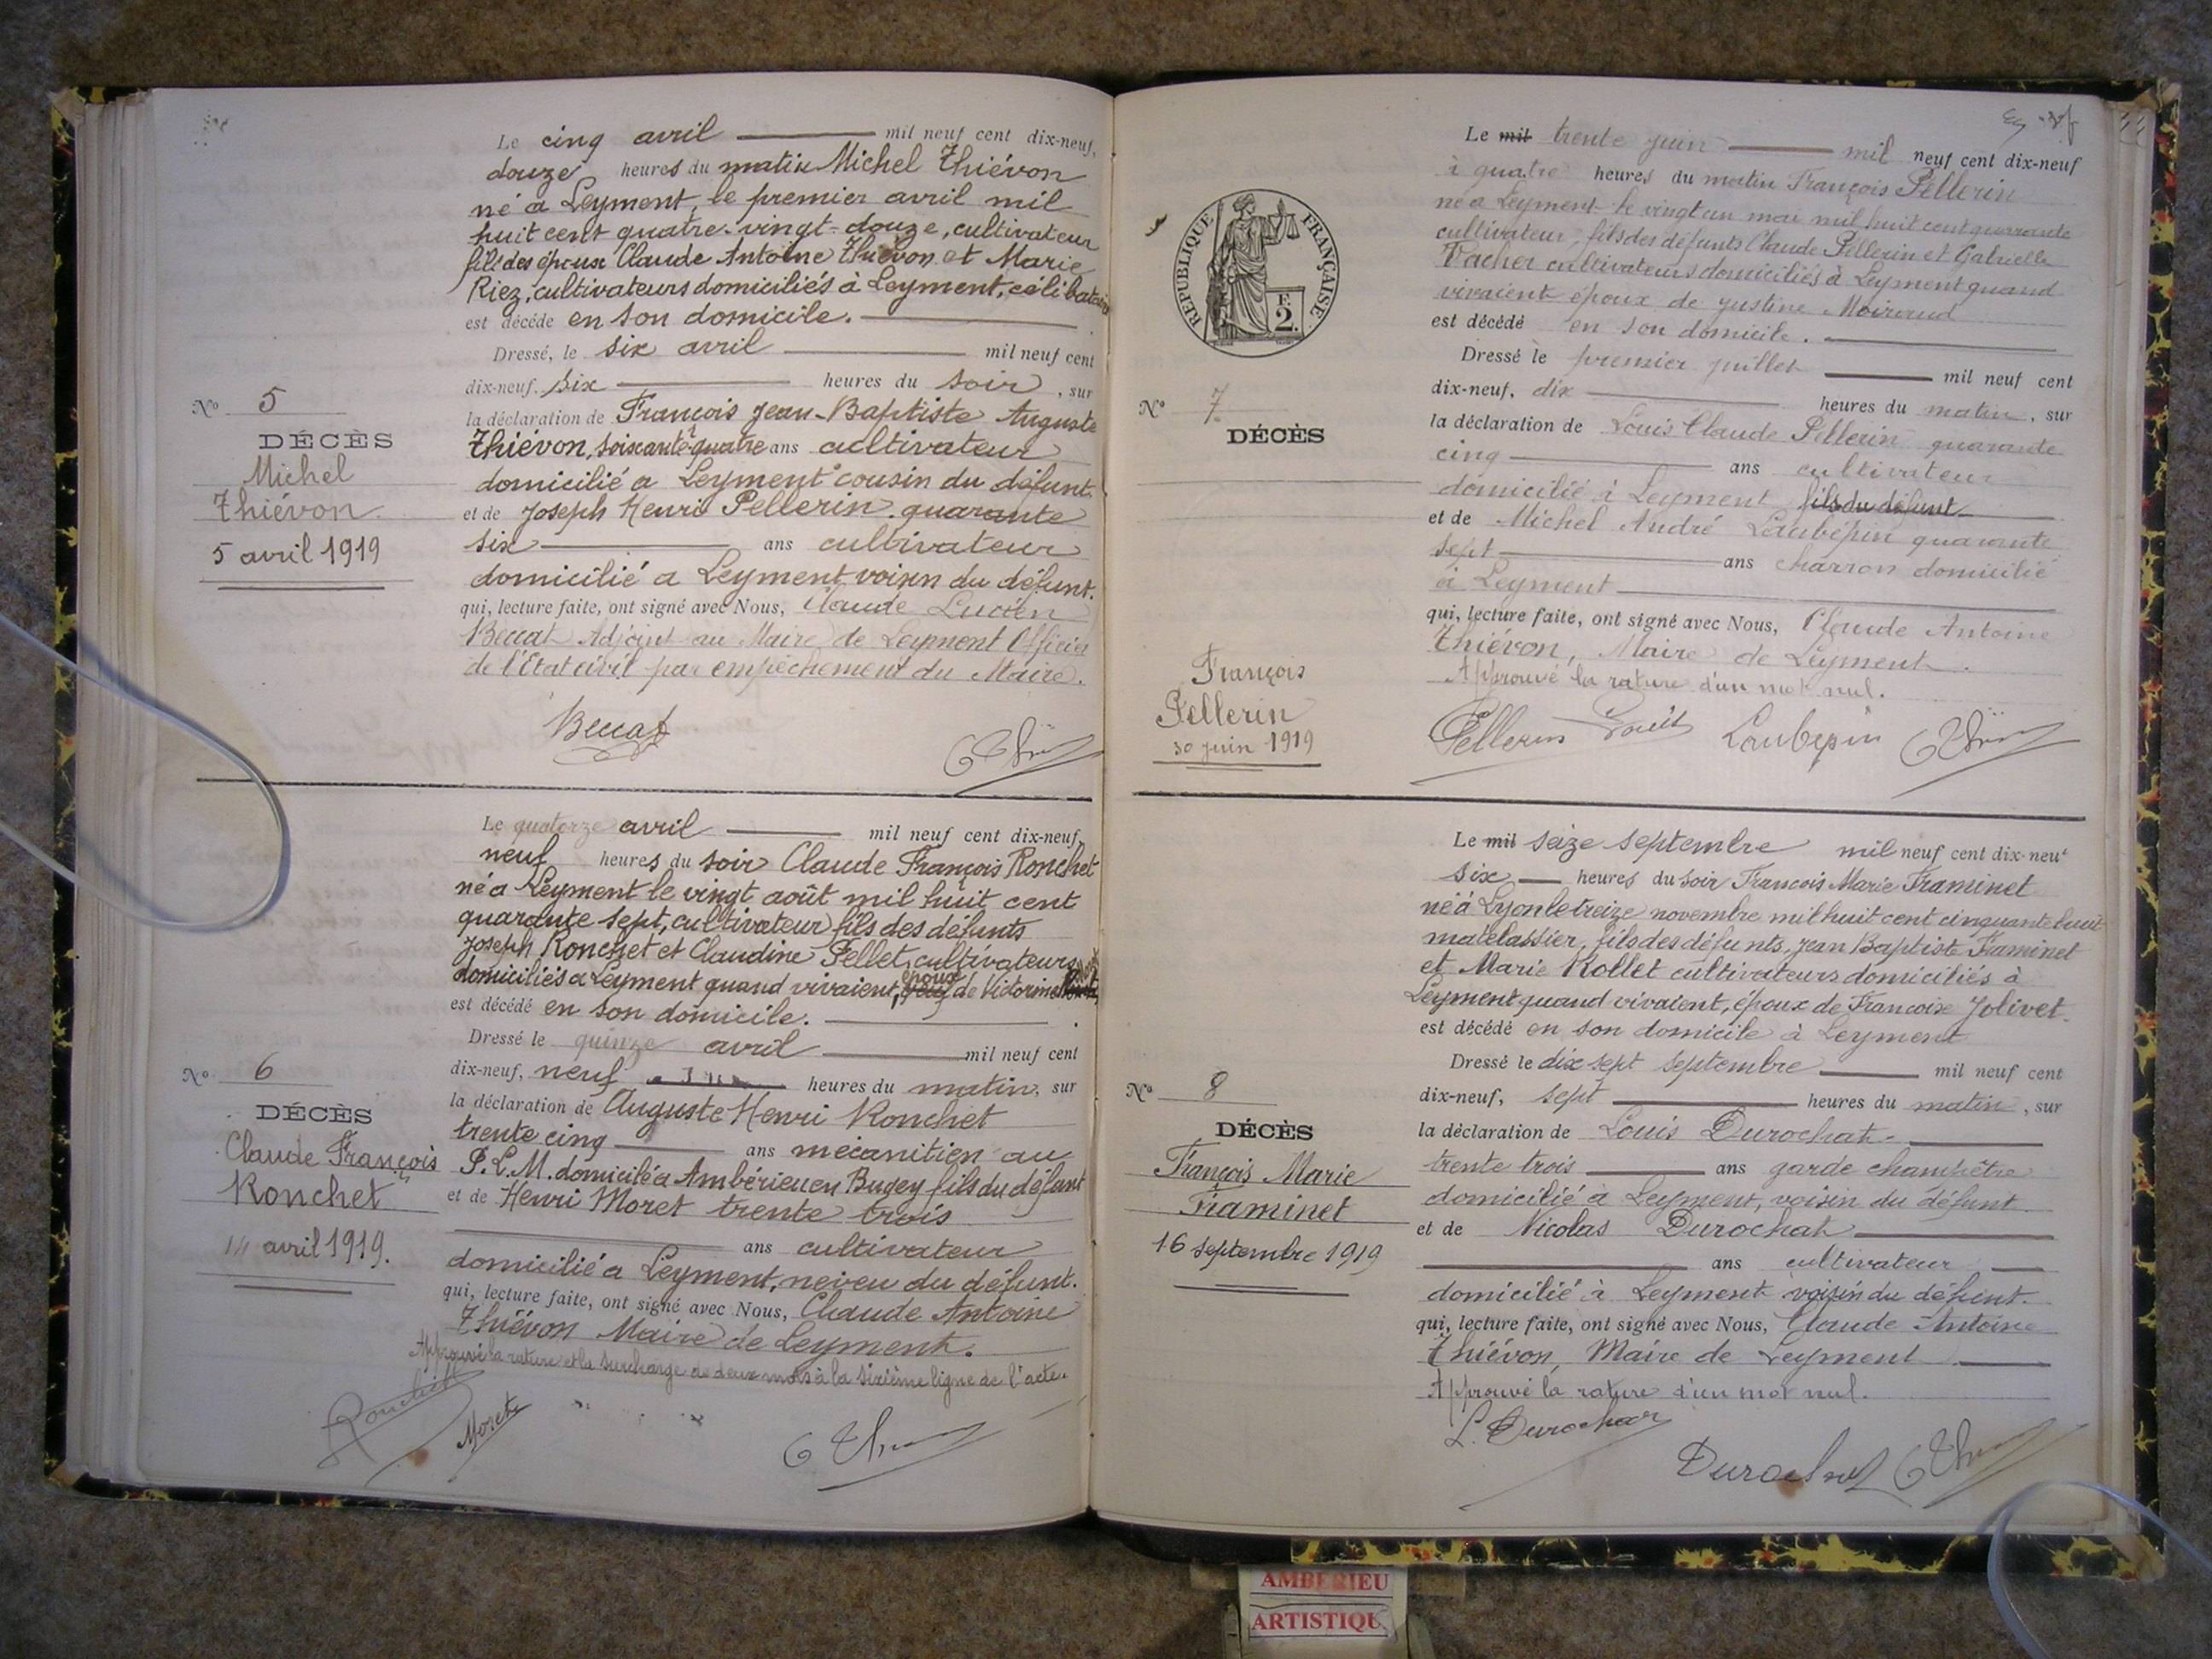 Le cinq avril mil neuf cent dix-neuf,
douze heures du matin Michel Thiévon
né à Leyment, le premier avril mil
huit cent quatre-vingt-douze, cultivateur
fils des époux Claude Antoine Thiévon et Marie
Riez, cultivateurs domiciliés à Leyment, célibataire
est décédé en son domicile.
Dressé, le six avril mil neuf cent
dix-neuf, six heures du soir, sur
la déclaration de François Jean-Baptiste Auguste
Thiévon, soixante-quatre ans cultivateur
domicilié a Leyment cousin du défunt.
et de Joseph Henri Pellerin quarante
six ans cultivateur
domicilié a Leyment voisin du défunt.
qui, lecture faite, ont signé avec Nous, Claude Lucien
Beccat Adjoint au Maire de Leyment Officier
de l'Etat civil par empêchement du Maire.
Beccat
N° 5
DÉCÈS
Michel
Thiévon
5 avril 1919
Le quatorze avril mil neuf cent dix-neuf,
neuf heures du soir Claude François Ronchet
né a Leyment le vingt août mil huit cent
quarante sept, cultivateur fils des défunts
Joseph Ronchet et Claudine Pellet, cultivateurs
domiciliés a Leyment quand vivaient, époux de Victorine
est décédé en son domicile.
Dressé le quinze avril mil neuf cent
dix-neuf, neuf heures du matin, sur
la déclaration de Auguste Henri Ronchet
trente cinq ans mécanitien au
P.L.M. domicilié a Ambérieu en Bugey fils du défunt
et de Henri Moret trente trois
ans cultivateur
domicilié a Leyment, neveu du défunt.
qui, lecture faite, ont signé avec Nous, Claude Antoine
Thiévon Maire de Leyment.
Approuvé la rature et la surcharge de deux mots à la sixième ligne de l'acte.
Ronchet Moret
N° 6
DÉCÈS
Claude François
Ronchet
14 avril 1919.
RÉPUBLIQUE FRANÇAISE
F.
2.
Le mil trente juin mil neuf cent dix-neuf
à quatre heures du matin François Pellerin
né a Leyment le vingt un mai mil huit cent quarante
cultivateur, fils des défunts Claude Pellerin et Gabrielle
Vacher cultivateurs domiciliés à Leyment quand
vivaient époux de Justine Moiraud
est décédé en son domicile.
Dressé le premier juillet mil neuf cent
dix-neuf, dix heures du matin, sur
la déclaration de Louis Claude Pellerin quarante
cinq ans cultivateur
domicilié à Leyment fils du défunt
et de Michel André Laubépin quarante
sept ans charron domicilié
à Leyment
qui, lecture faite, ont signé avec Nous, Claude Antoine
Thiévon, Maire de Leyment.
Approuvé la rature d'un mot nul.
Pellerin Louis Laubepin
N° 7
DÉCÈS
François
Pellerin
30 juin 1919
Le mil seize septembre mil neuf cent dix-neuf
six heures du soir François Marie Framinet
né à Lyon le treize novembre mil huit cent cinquante huit
matelassier, fils des défunts Jean Baptiste Framinet
et Marie Rollet cultivateurs domiciliés à
Leyment quand vivaient, époux de Francoise Jolivet.
est décédé en son domicile à Leyment
Dressé le dix sept septembre mil neuf cent
dix-neuf, sept heures du matin, sur
la déclaration de Louis Durochat.
trente trois ans garde champêtre
domicilié à Leyment, voisin du défunt
et de Nicolas Durochat
ans cultivateur
domicilié à Leyment voisin du défunt.
qui, lecture faite, ont signé avec Nous, Claude Antoine
Thiévon, Maire de Leyment
Approuvé la rature d'un mot nul.
L. Durochat
Durochat
N° 8
DÉCÈS
François Marie
Framinet
16 septembre 1919
AMBERIEU
ARTISTIQU